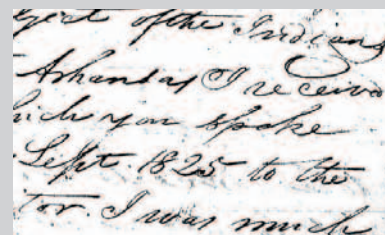 ject of the Indians
Arkansas I receive
hich you spoke
Sept. 1825 to the
Tor. I was much